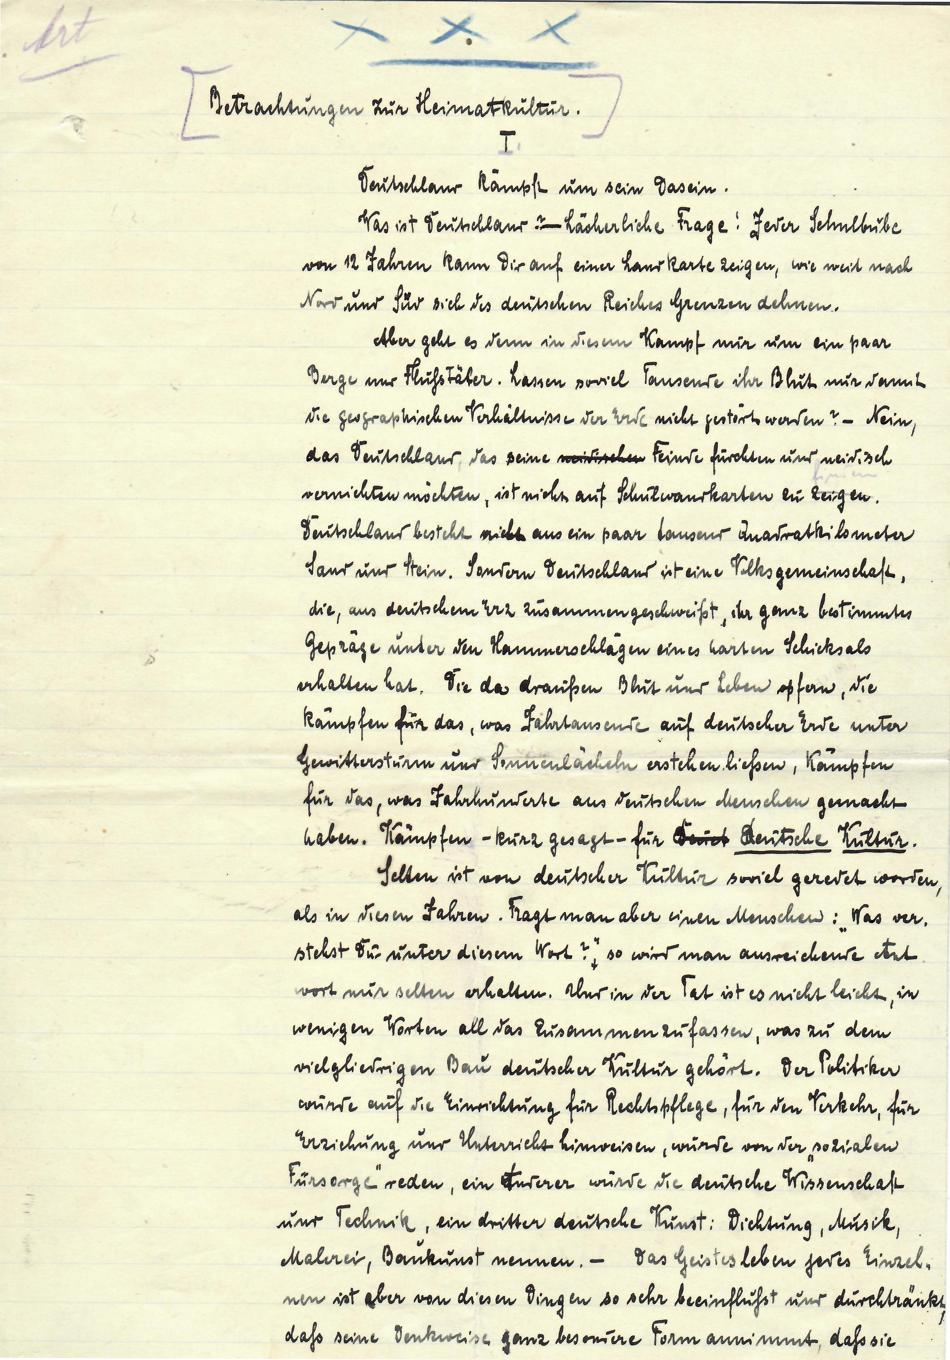 Art
[Betrachtungen zur Heimatkultur.]
I.
Deutschland kämpft um sein Dasein.
Was ist Deutschland?— Lächerliche Frage! Jeder Schulbube
von 12 Jahren kann Dir auf einer Landkarte zeigen, wie weit nach
Nord und Süd sich des deutschen Reiches Grenzen dehnen.
Aber geht es denn in diesem Kampf nur um ein paar
Berge und Flußtäler. Lassen soviel Tausende ihr Blut nur damit
die geographischen Verhältnisse der Erde nicht gestört werden? – Nein,
das Deutschland, das seine neidischen Feinde fürchten und neidisch
vernichten möchten, ist nicht auf Schulwandkarten zu zeigen.
Deutschland besteht nicht aus ein paar tausend Quadratkilometer
Sand und Stein. Sondern Deutschland ist eine Volksgemeinschaft,
die, aus deutschem Erz zusammengeschweißt, ihr ganz bestimmtes
Gepräge unter den Hammerschlägen eines harten Schicksals
erhalten hat. Die da draußen Blut und Leben opfern, die
kämpfen für das, was Jahrtausende auf deutscher Erde unter
Gewittersturm und Sonnenlächeln erstehen ließen, kämpfen
für das, was Jahrhunderte aus deutschen Menschen gemacht
haben. Kämpfen – kurz gesagt – für Deutsche Kultur.
Selten ist von deutscher Kultur soviel geredet worden,
als in diesen Jahren. Fragt man aber einen Menschen: „Was ver-
stehst Du unter diesem Wort?", so wird man ausreichende Ant
wort nur selten erhalten. Und in der Tat ist es nicht leicht, in
wenigen Worten all das zusammenzufassen, was zu dem
vielgliedrigen Bau deutscher Kultur gehört. Der Politiker
würde auf die Einrichtung für Rechtspflege, für den Verkehr, für
Erziehung und Unterricht hinweisen, würde von der „sozialen
Fürsorge" reden, ein Anderer würde die deutsche Wissenschaft
und Technik, ein dritter deutsche Kunst: Dichtung, Musik,
Malerei, Baukunst nennen. – Das Geistesleben jedes Einzel-
nen ist aber von diesen Dingen so sehr beeinflußt und durchtränkt,
daß seine Denkweise ganz besondere Form annimmt, daß sie